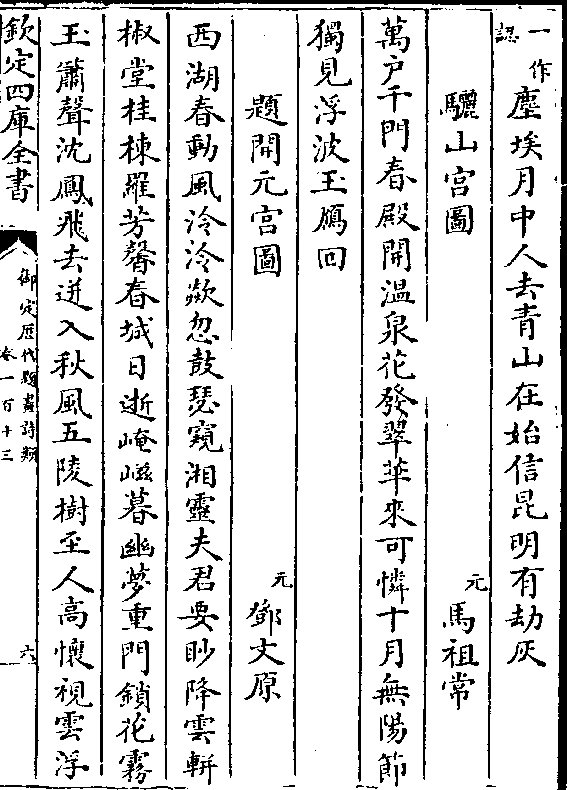 一作認塵埃月中人去青山在始信昆明有劫灰
驪山宫圖
元馬祖常
萬户千門春殿開溫泉花發翠華來可憐十月無陽節
獨見浮波玉鴈回
題開元宫圖
元鄧文原
西湖春動風泠泠歘忽鼓瑟窺湘靈夫君要眇降雲軿
椒堂桂棟羅芳馨春城日逝崦嵫暮幽夢重門鎖花霧
玉簫聲沈鳳飛去迸入秋風五陵樹至人高懷視雲浮
欽定四庫全書
御定歷代題畫詩類
卷一百十三
六